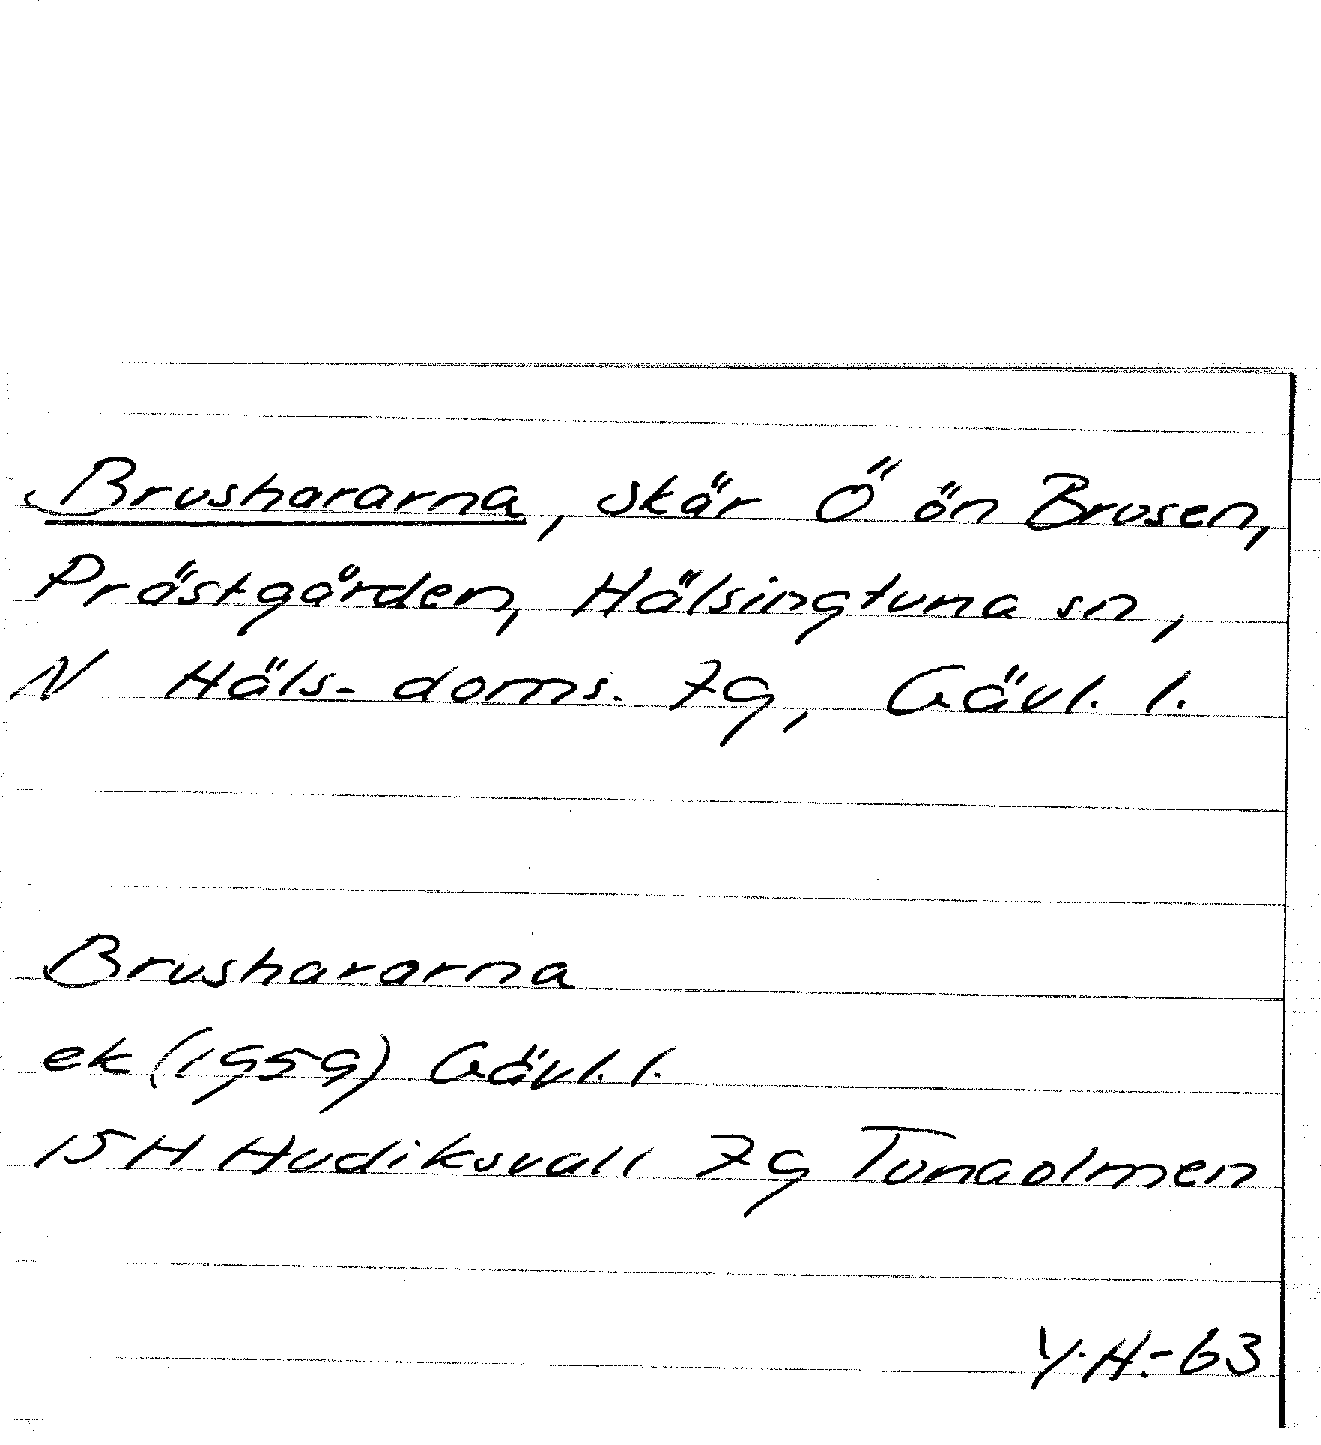 Brushararna, skär Ö ön Brusen,
Prästgården, Hälsingtuna sn,
N Häls. doms. 7g, Gävl. l.
Brushararna
ek (1959) Gävl. l.
15H Hudiksvall 7g Tunaolmen
Y.H.-63